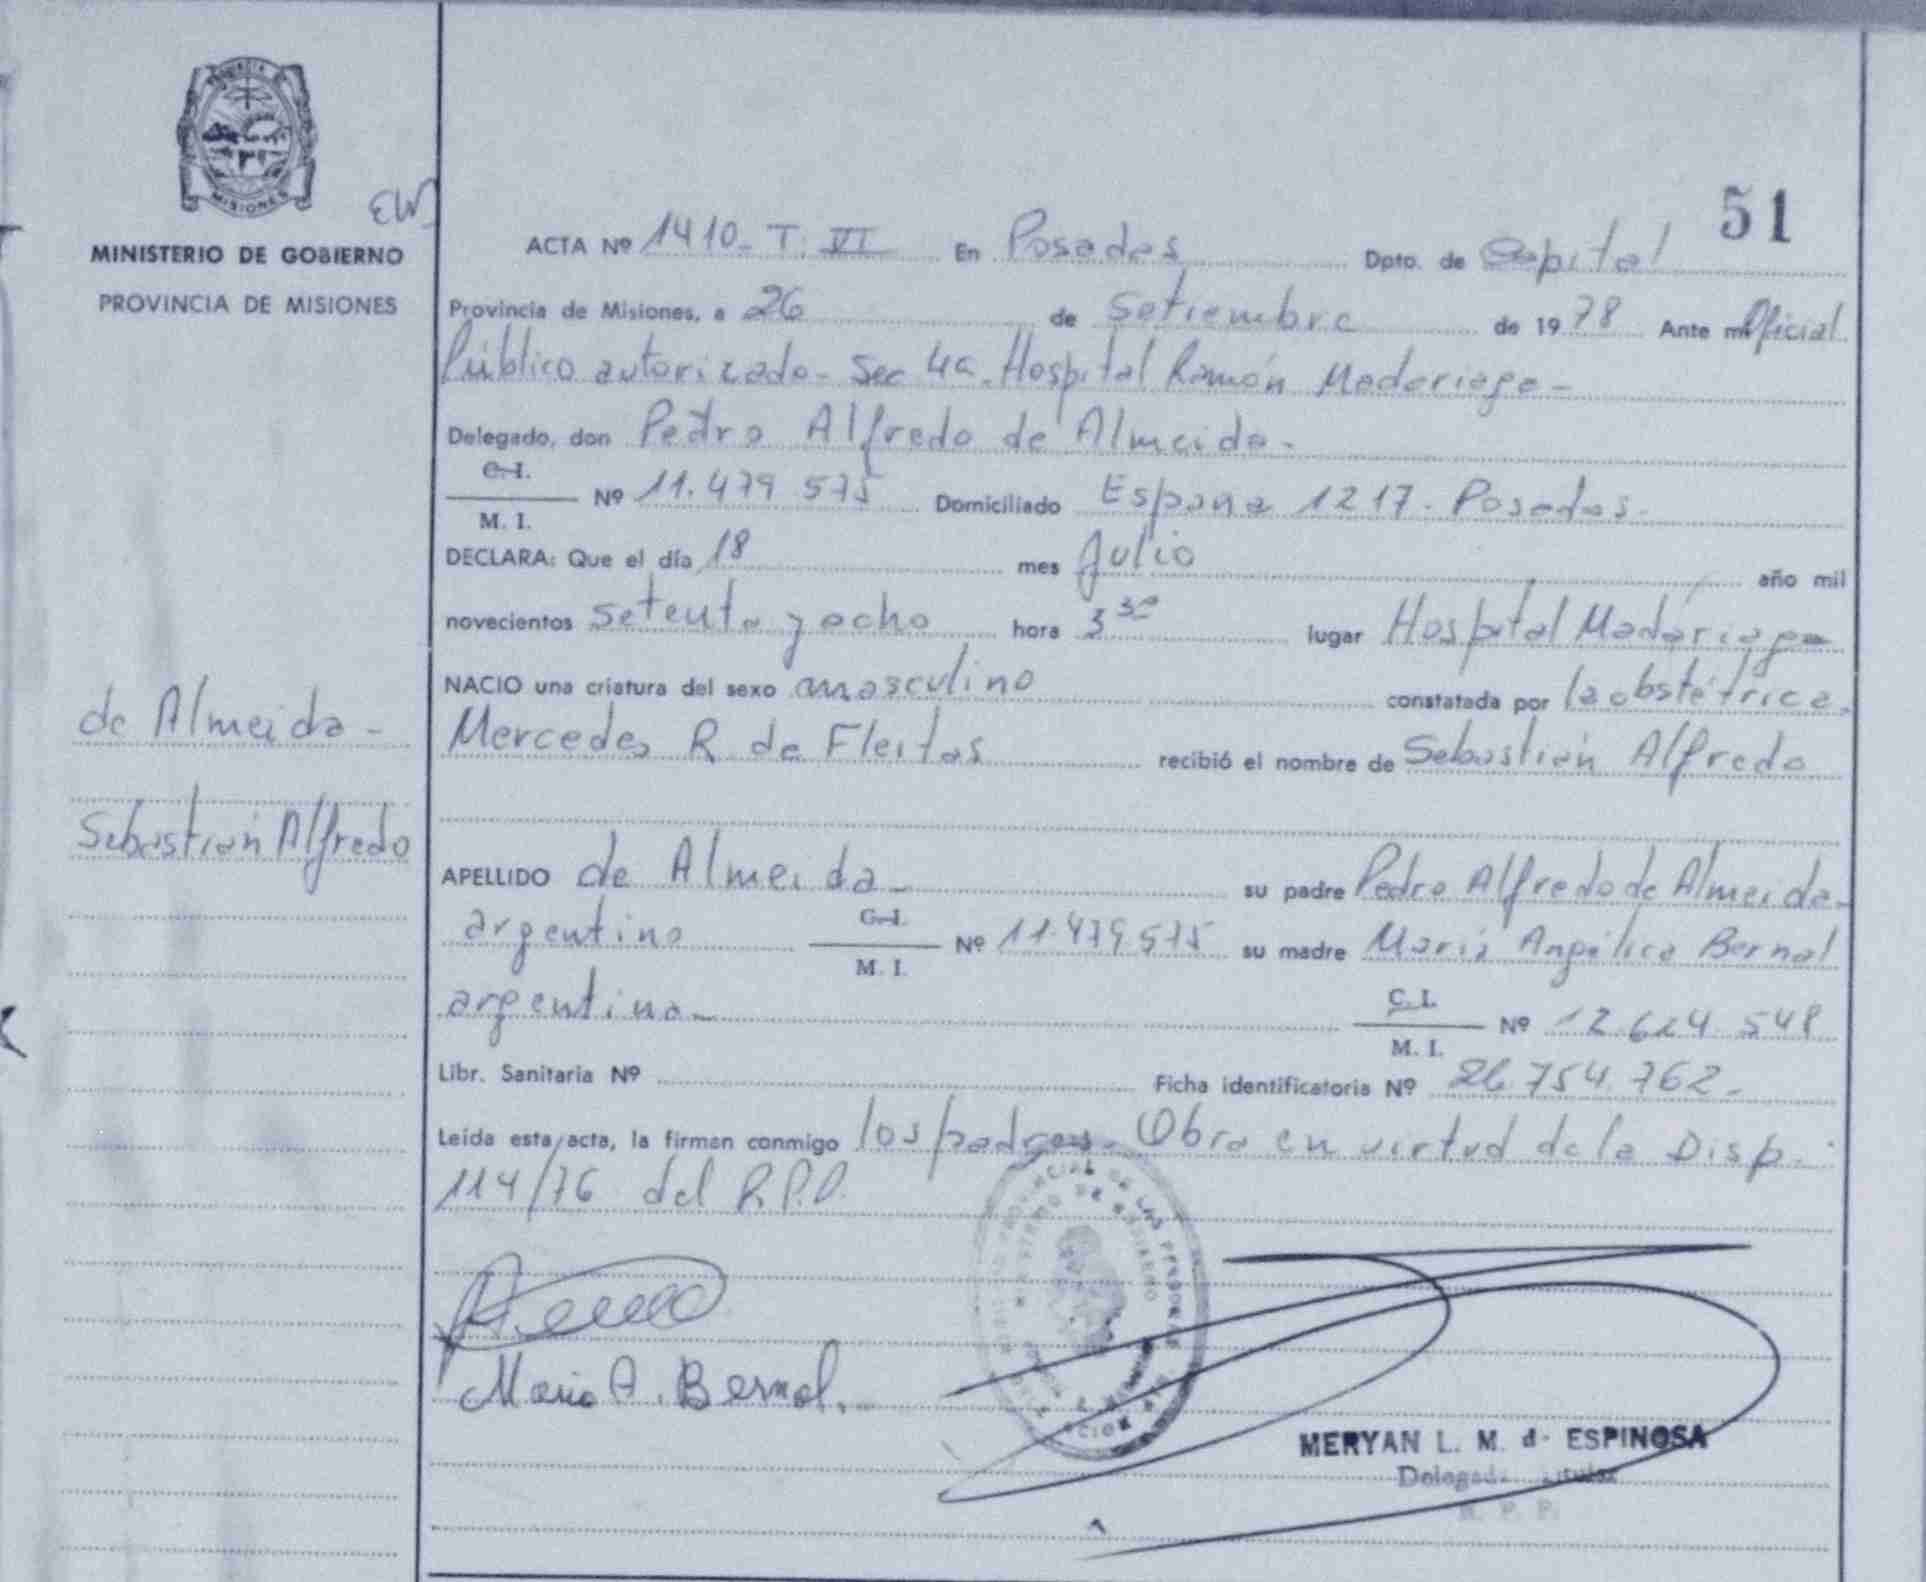 PROVINCIA DE
MISIONES
MINISTERIO DE GOBIERNO
PROVINCIA DE MISIONES
51
ACTA Nº 1410_ T. VI En Posadas Dpto. de Capital
Provincia de Misiones, a 26 de Setiembre de 1978 Ante mí Oficial
Público autorizado - Sec 4a. Hospital Ramón Madariaga -
Delegado, don Pedro Alfredo de Almeida.
C.I.
M. I. Nº 11.479 575 Domiciliado España 1217. Posadas.
DECLARA: Que el día 18 mes Julio año mil
novecientos setenta y ocho hora 3 30 lugar Hospital Madariaga
NACIO una criatura del sexo masculino constatada por la obstétrica
Mercedes R. de Fleitas recibió el nombre de Sebastián Alfredo
de Almeida -
Sebastián Alfredo
APELLIDO de Almeida - su padre Pedro Alfredo de Almeida -
argentino C.I.
M. I. Nº 11.479.575 su madre María Angélica Bernal
argentina - C. I.
M. I. Nº 12.624 548
Libr. Sanitaria Nº Ficha identificatoria Nº 26.754.762 -
Leída esta acta, la firman conmigo los padres. Obra en virtud de la Disp.
114/76 del R.P.P.
Maria A. Bernal.
MERYAN L. M. de ESPINOSA
Delegada Titular
R. P. P.